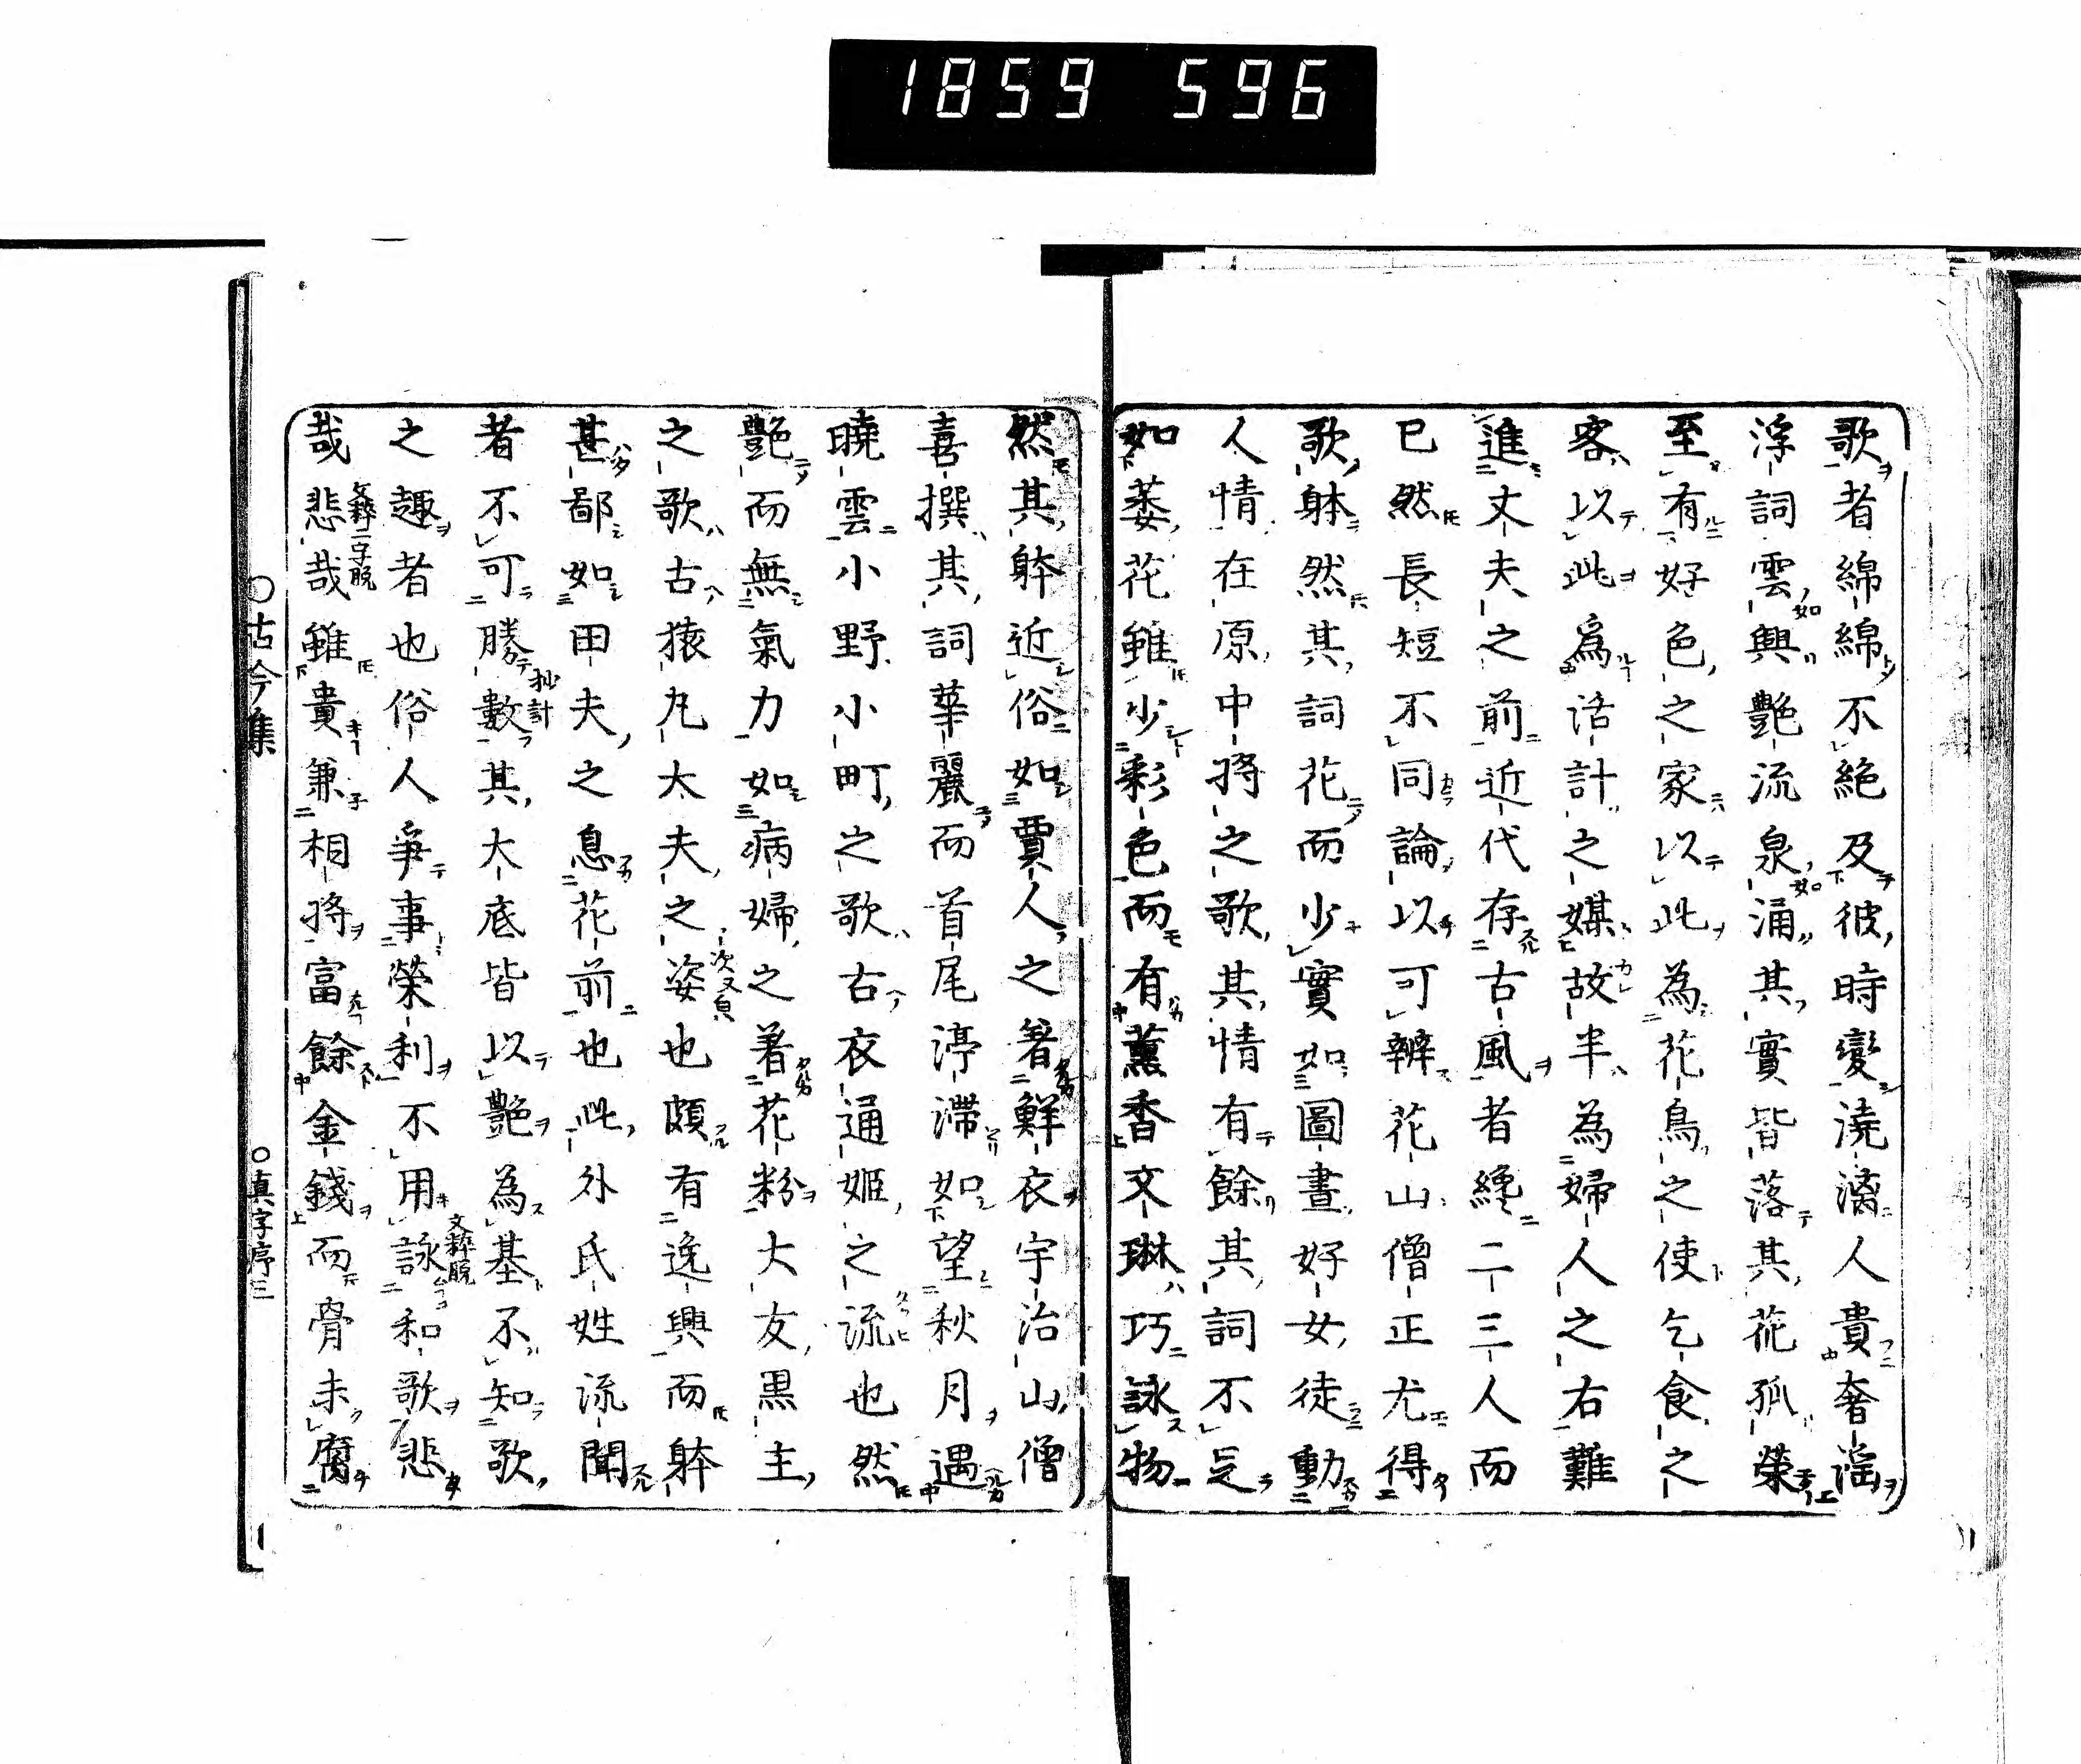 1859 596
歌者綿綿不絶及彼時變澆漓人貴奢淫
浮詞雲興艶流泉涌其實皆落其花孤榮
至有好色之家以此為花鳥之使乞食之
客以此爲活計之媒故半為婦人之右難
進丈夫之前近代存古風者纔二三人而
已然長短不同論以可辨花山僧正尤得
歌躰然其詞花而少實如圖畫好女徒動
人情在原中将之歌其情有餘其詞不足
如萎花雖少彩色而有薫香文琳巧詠物
然其躰近俗如賈人之著鮮衣宇治山僧
喜撰其詞華麗而首尾渟滞如望秋月遇
曉雲小野小町之歌古衣通姫之流也然
艶而無氣力如病婦之著花粉大友黒主
之歌古猿丸大夫之姿也頗有逸興而躰
甚鄙如田夫之息花前也此外氏姓流聞
者不可勝數其大底皆以艶為基不知歌
之趣者也俗人爭事榮利不用詠和歌悲
哉悲哉雖貴兼相将富餘金錢而骨未腐
古今集
真字序三